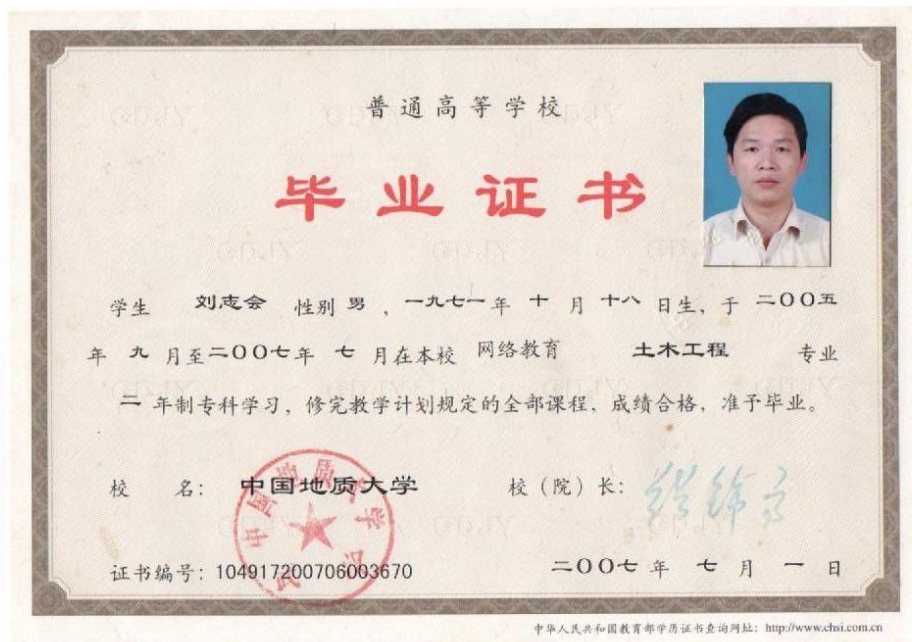 普通高等学校
毕业证书
学生 刘志会 性别 男，一九七一年 十 月 十八 日生，于 二〇〇五
年 九 月至二〇〇七年 七 月在本校 网络教育 土木工程 专业
二 年制专科学习，修完教学计划规定的全部课程，成绩合格，准予毕业。
校 名：中国地质大学 校（院）长：
证书编号：104917200706003670 二〇〇七 年 七 月 一 日
中华人民共和国教育部学历证书查询网址：http://www.chsi.com.cn